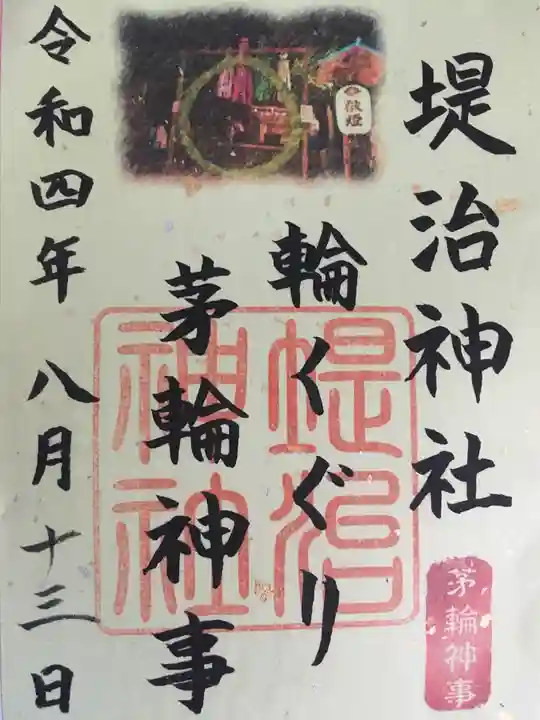 堤治神社
輪くぐり
茅輪神事
令和四年 八月十三日
献燈
堤治
神社
茅輪神事